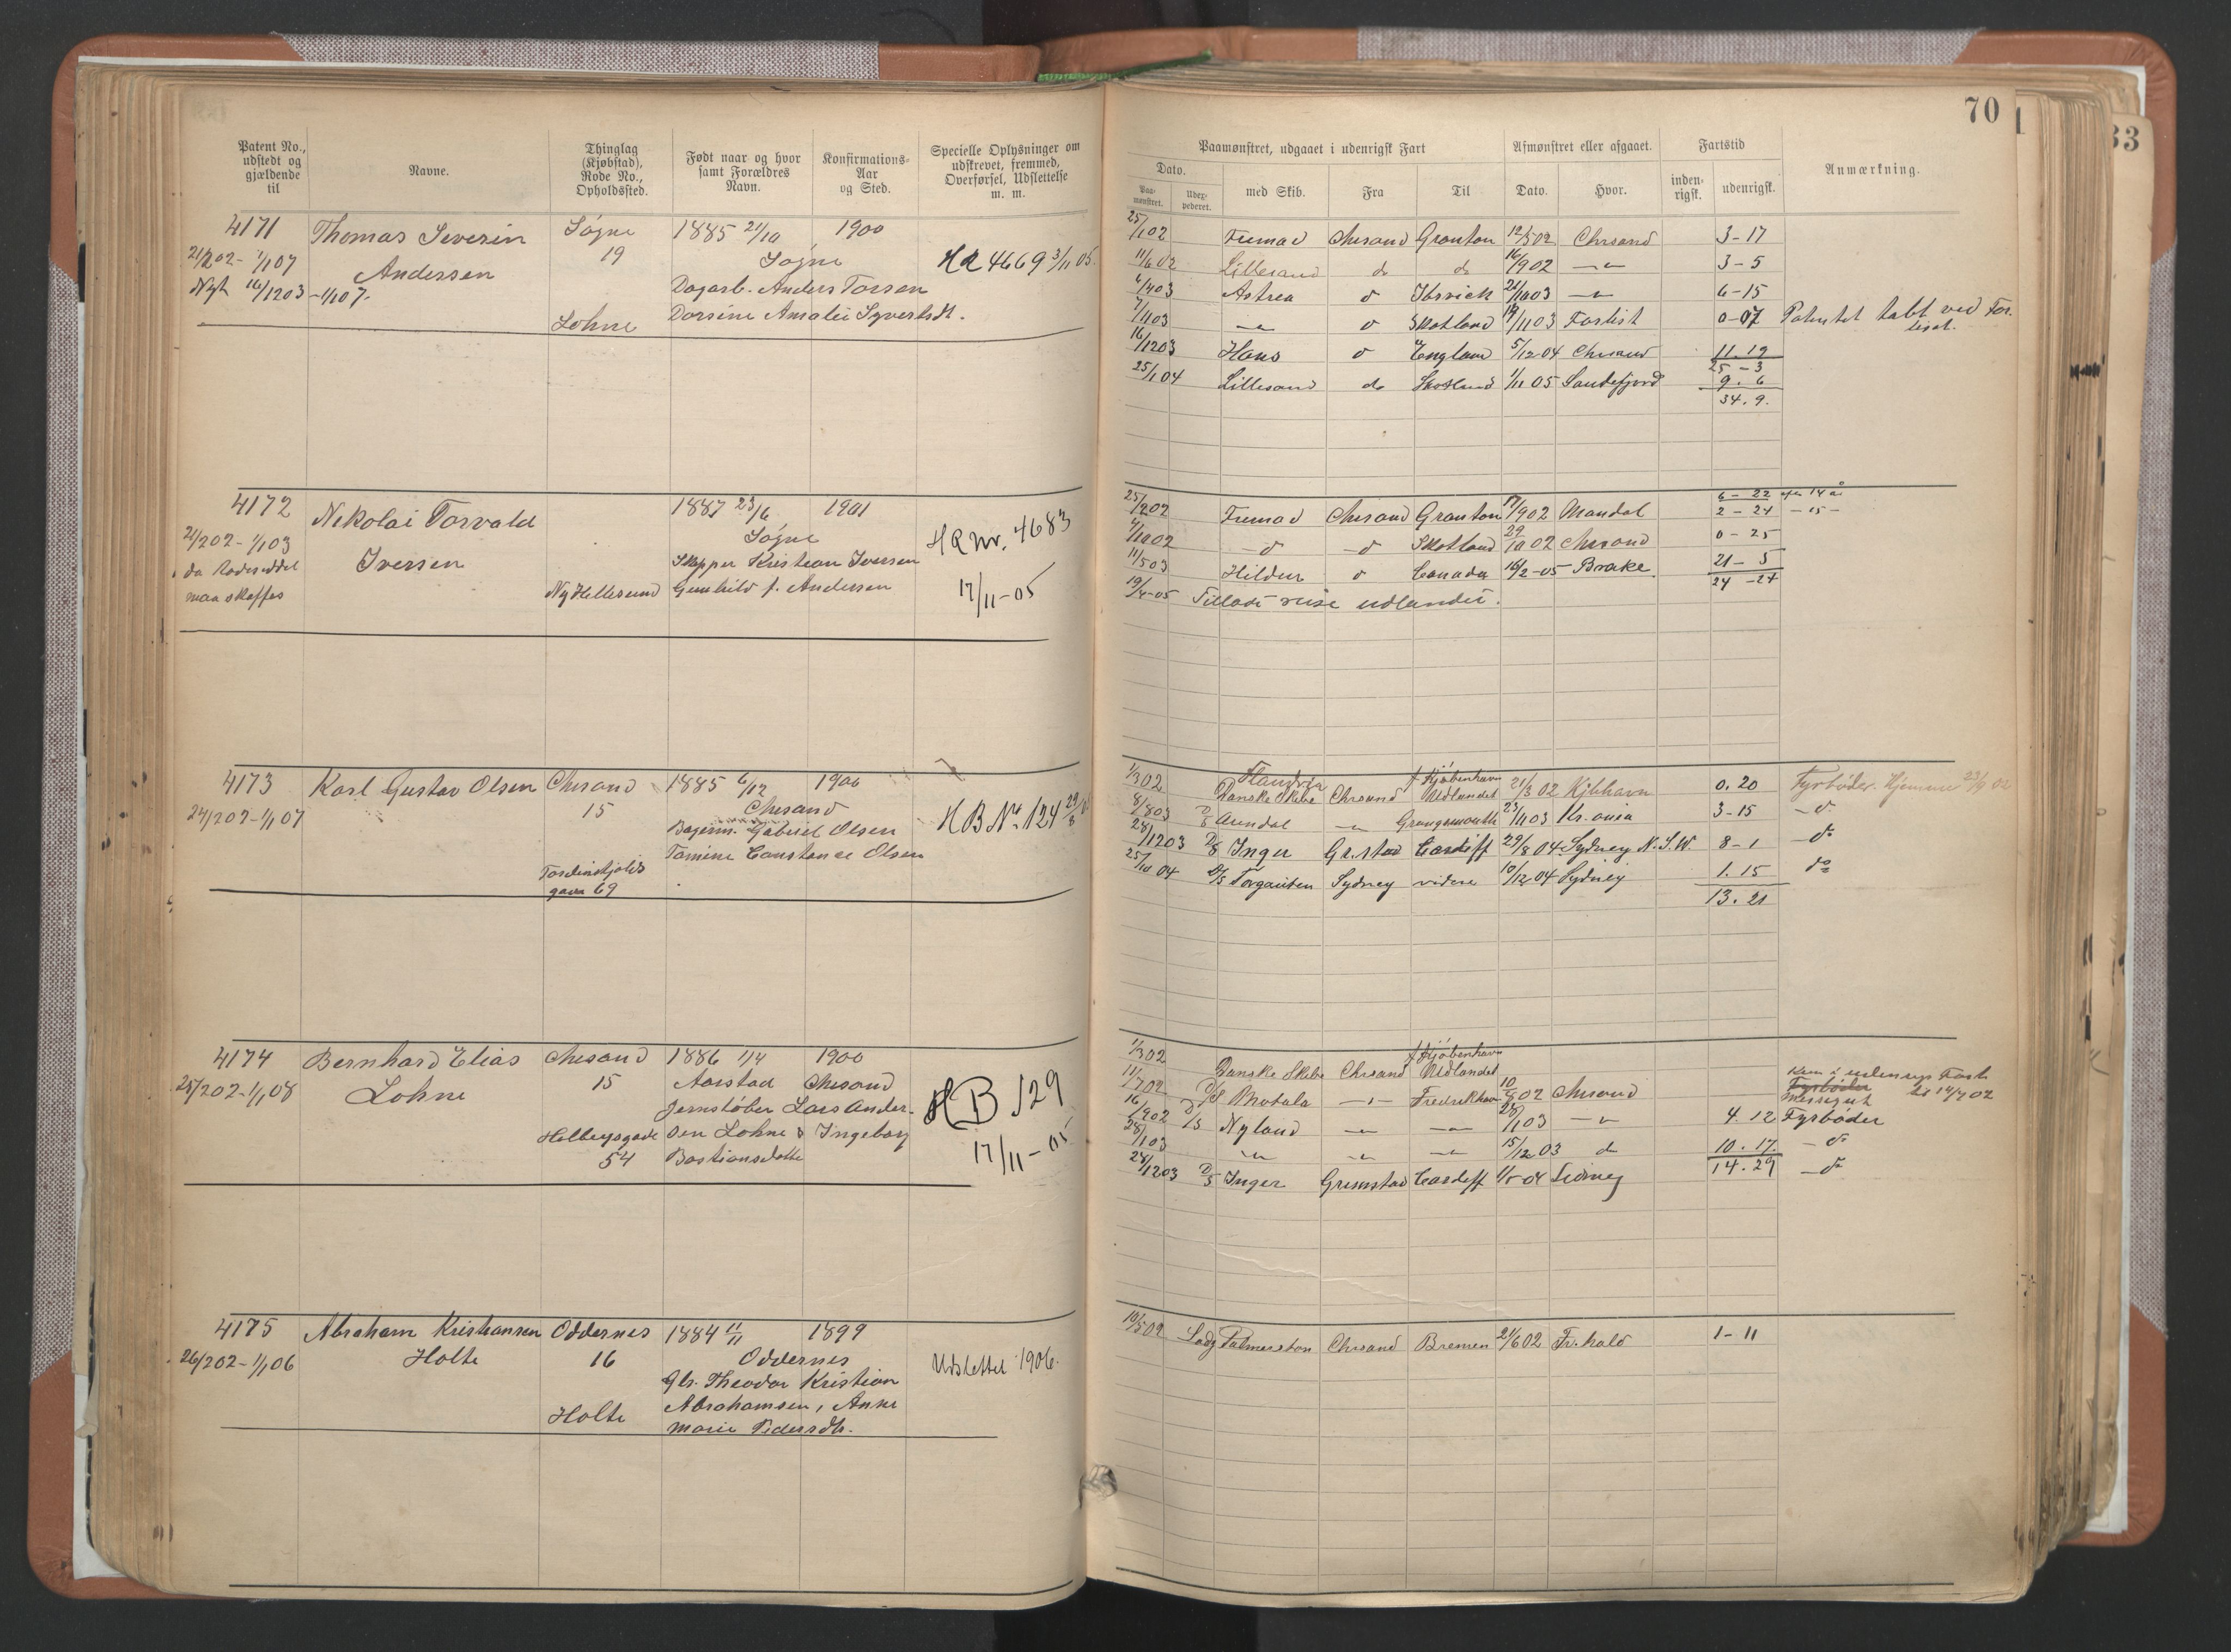 70
33
Patent No., udstedt og gjældende til
Navne.
Thinglag (Kjøbstad), Rode No., Opholdssted.
Født naar og hvor samt Forældres Navn.
Konfirmations-Aar og Sted.
Specielle Oplysninger om udskrevet, fremmed, Overførsel, Udslettelse m. m.
Paamønstret, udgaaet i udenrigsk Fart
Afmønstret eller afgaaet.
Fartstid
Anmærkning.
Dato.
Paa-mønstret.
med Skib.
Fra
Til
Dato.
Hvor.
inden-rigsk.
udenrigsk.
4171 Thomas Severin Søgne 1885 21/10 1900
21/202 - 1/107 Andersen 19 Søgne HR 4669 3/11 05.
Nyt 16/1203 - 1/107. Dagarb. Anders Torsen
Lohne Dorsine Amalie Syvertsdt.
25/102 Fremad Chrsand Granton 12/502 Chrsand 3-17
11/602 Lillesand do do 16/902 —"— 3-5
4/403 Astrea do 21/1003 —"— 6-15
7/1103 —"— do Skotland 14/1103 Forlist 0-07 Patentet tabt ved For-
liset.
16/1203 Hans do England 5/1204 Chrsand 11.19
25-3
25/104 Lillesand do Skotland 1/1105 Sandefjord 9.6
34.9.
4172 Nikolai Torvald 1887 23/6 1901
21/202 - 1/103 Iversen Søgne HR Nr. 4683
da Rodeseddel Skipper Kristian Iversen
maa skaffes Ny Hellesund Gunhild f. Andersen 17/11-05
6-22 efter 14 år
25/202 Fremad Chrsand Granton 17/902 Mandal 2-24 -15-
4/1002 —d —d Skotland 29/1002 Chrsand 0-25
11/503 Hildur do Canada 16/2-05 Brake. 21-5
24-24
19/4-05 Tilladt reise udlandet.
4173 Karl Gustav Olsen Chrsand 1885 6/12 1900
24/202 - 1/107 15 Chrsand HB No. 124
Bagerm. Gabriel Olsen
Tomine Constance Olsen
Tordenskjolds
gade 69
1/302 Danske Skibe Chrsand f Kjøbenhavn Udlandet 21/302 Kjbhavn 0.20 Fyrbøder. Hjemme
8/803 D/S Arendal —"— Grangemouth 23/1103 Kr.ania 3-15 —d.
28/1203 D/S Inger Gr.stad Cardiff 29/804 Sydney N.S.W. 8-1 —do
25/1004 D/S Torgauten Sydney videre 10/1204 Sydney 1.15 do
13.21
4174 Bernhard Elias Chrsand 1886 1/14 1900
25/202 - 1/108 Lohne 15 Aarstad Chrsand HB 129
Jernstøber Lars Ander-
Holbergsgade sen Lohne & Ingeborg 17/11-05
54 Bastiansdatte
1/302 Danske Skibe Chrsand f Kjøbenhavn Udlandet
11/702 D/S Motala —"— Fredrikhav 10/902 Chrsand Fyrbøder
16/902 D/S Nyland —"— —"— 28/1103 —"— 4.12 Fyrbøder
28/1103 —"— —"— —"— 15/1203 do 10.17. —d
14.29
28/1203 D/S Inger Grimstad Cardiff Sidney —do
4175 Abraham Kristiansen Oddernes 1884 11/11 1899
26/202 - 1/106 Holte 16 Oddernes Udslettet 1906.
Gbr. Theodor Kristian
Holte Abrahamsen, Anne
Marie Pedersdtr.
10/502 Lady Palmerston Chrsand Bremen 21/602 Fr.hald 1-11